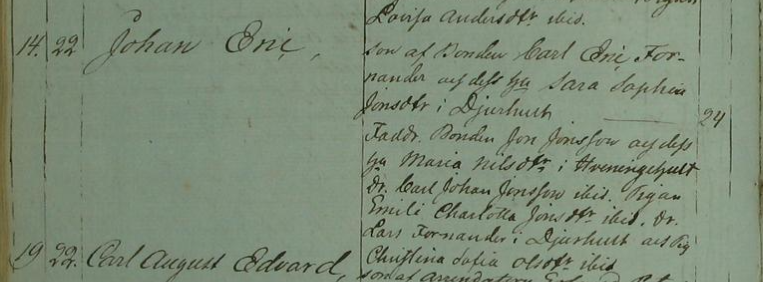 Lovisa Andersdtr ibid.
14. 22 Johan Eric, son af Bonden Carl Eric For-
nander och dess hu Sara Sophia
Jonsdtr i Djurhult 24
Faddr. Bonden Jon Jonsson och dess
hu Maria Nilsdtr i Hveningehult
Dr. Carl Johan Jonsson ibid. Pigan
Emili Charlotta Jonsdtr ibid. Dr.
Lars Fornander i Djurhult och Pig
Christina Sofia Olsdtr ibid
19 22. Carl August Edvard, son af